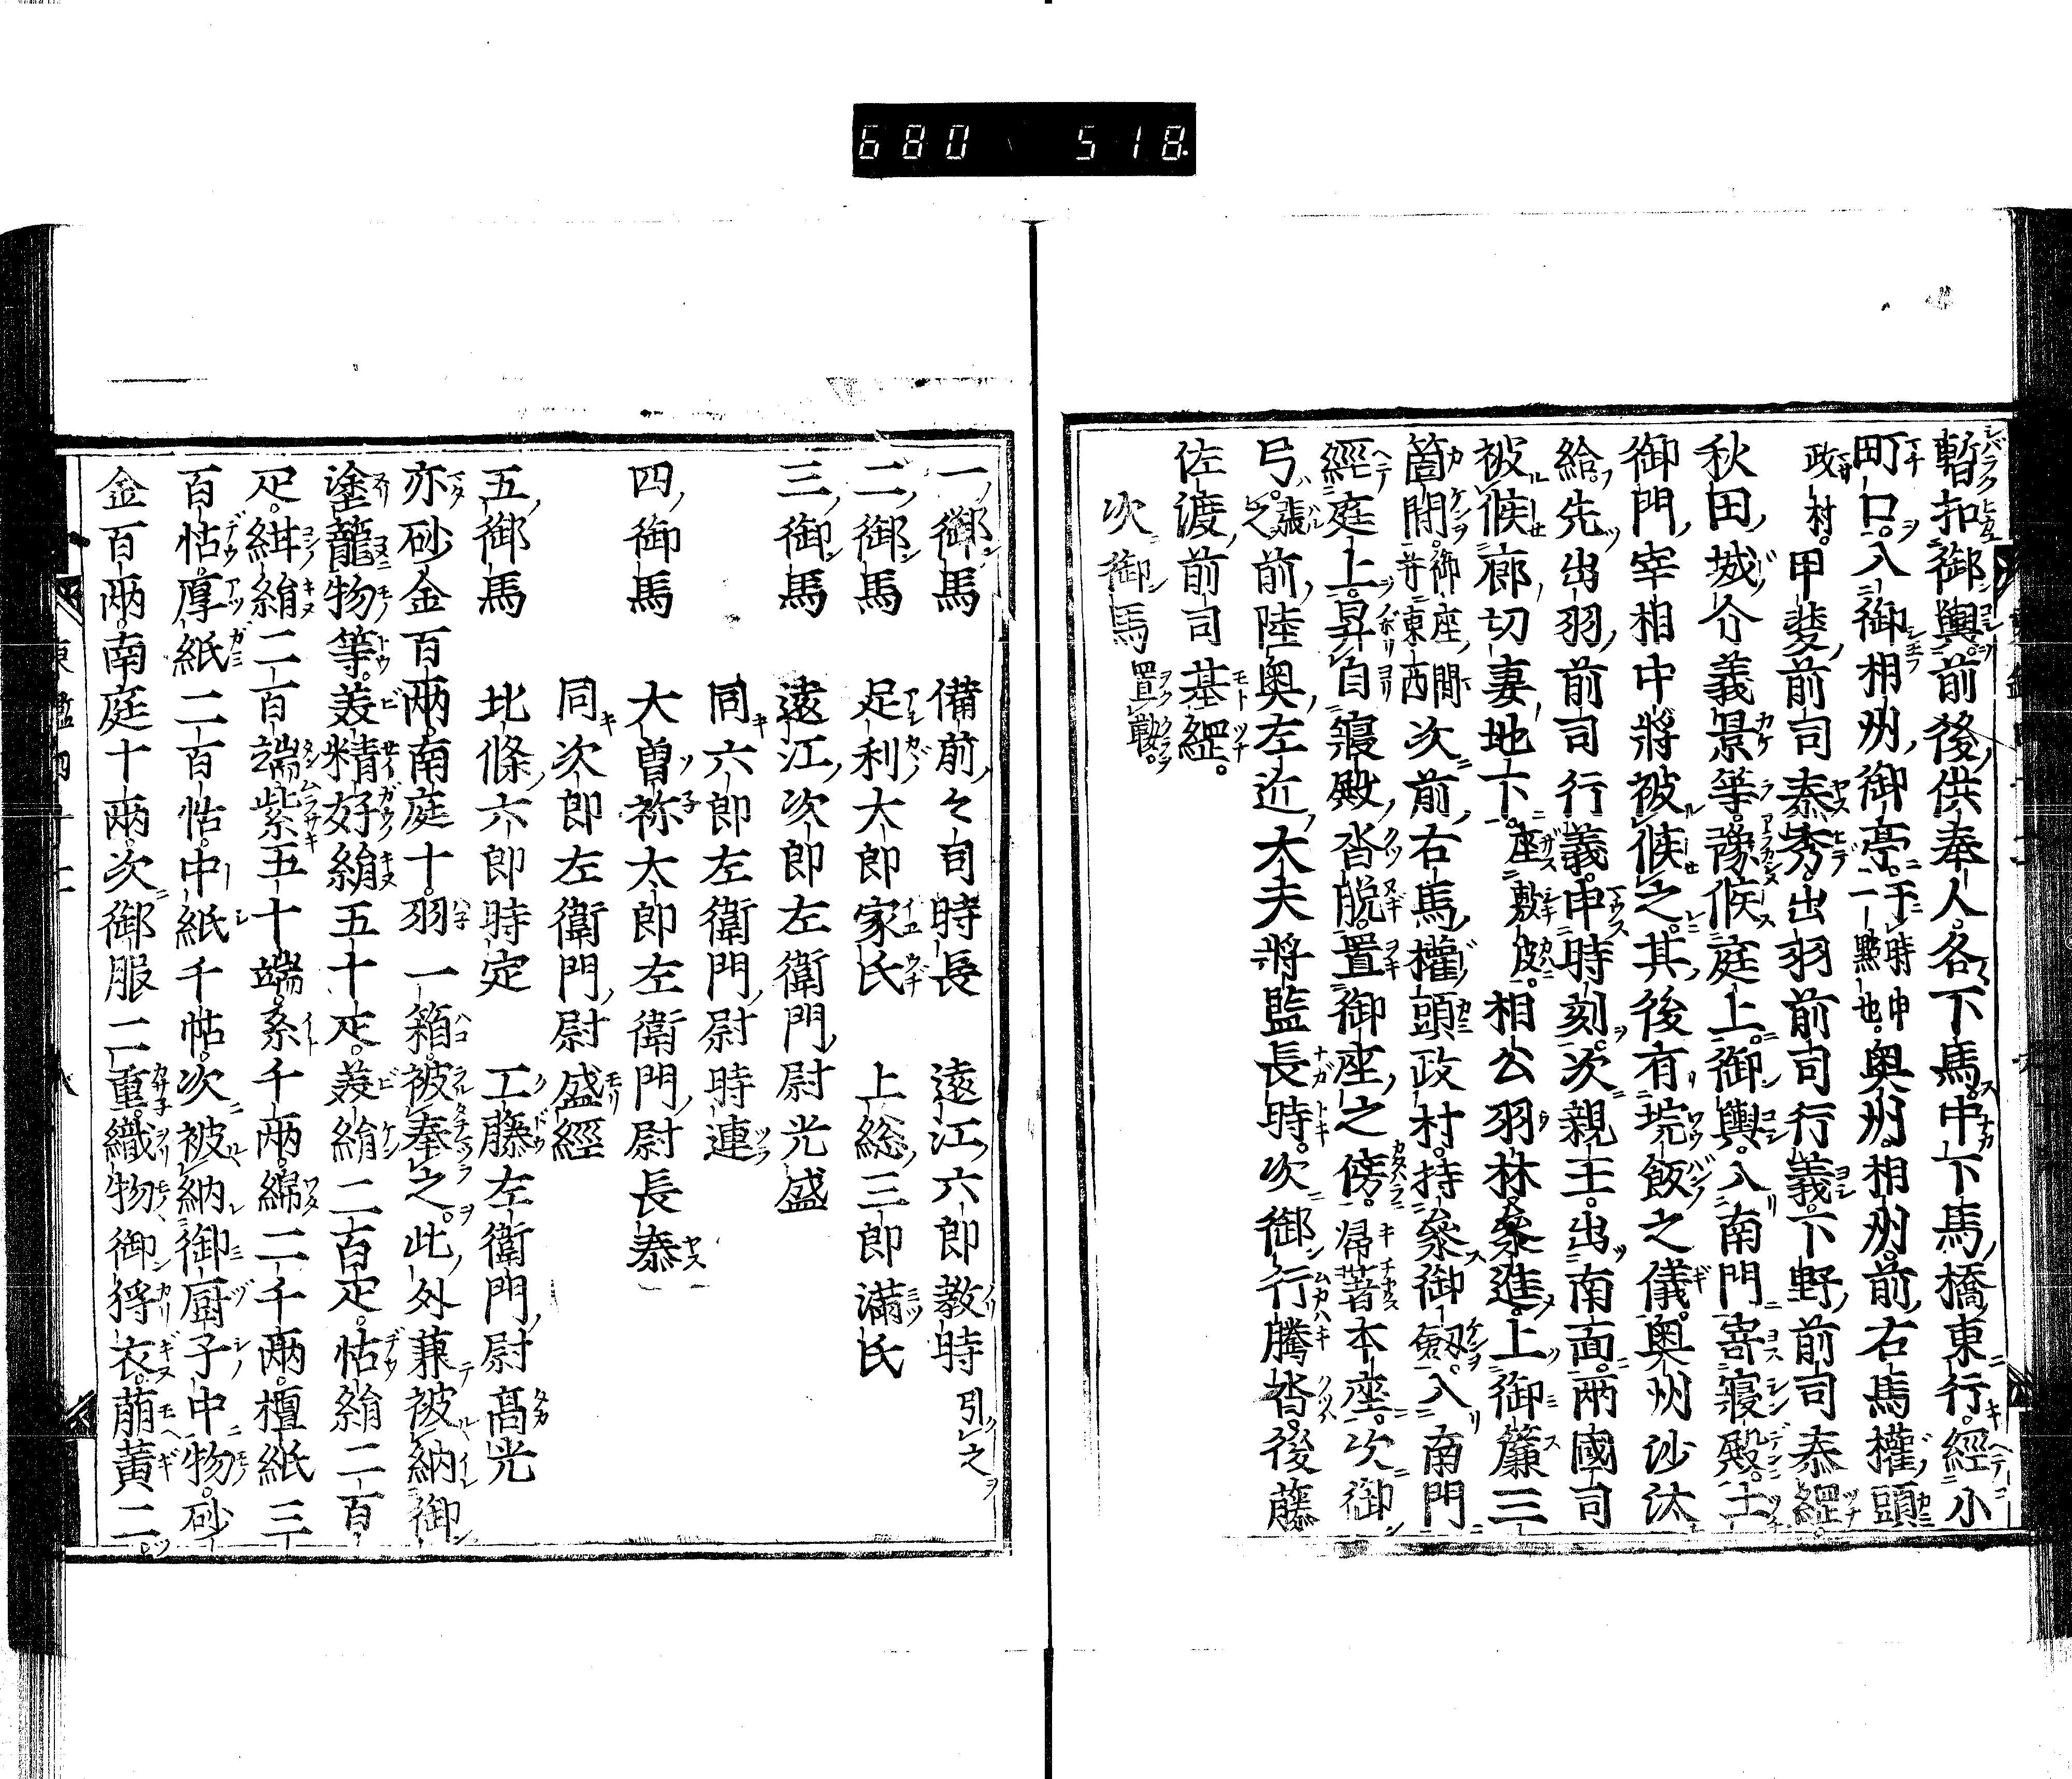 680 518
暫扣御輿。前後供奉人。各下馬。中下馬橋東行。經小
町口。入御相州御亭。于時申一點也。奧州。相州。前右馬權頭
政村。甲斐前司泰秀。出羽前司行義。下野前司泰經。
秋田城介義景等。豫候庭上。御輿。入南門寄寢殿。土
御門宰相中將被候之。其後有垸飯之儀。奧州沙汰
給。先出羽前司行義。申時刻。次親王。出南面。兩國司
被候廊切妻地下。座敷皮。相公羽林。參進。上御簾三
箇間。御座間并東西次前右馬權頭政村。持參御劔。入南門
經庭上。昇自寢殿沓脱。置御座之傍。歸著本座。次御
弓。張之前陸奧左近大夫將監長時。次御行騰沓。後藤
佐渡前司基經。
次御馬置鞍。
一御馬 備前々司時長 遠江六郎教時引之
二御馬 足利大郎家氏 上総三郎滿氏
三御馬 遠江次郎左衛門尉光盛
同六郎左衛門尉時連
四御馬 大曽祢大郎左衛門尉長泰
同次郎左衛門尉盛經
五御馬 北條六郎時定 工藤左衛門尉髙光
亦砂金百兩。南庭十。羽一箱。被奉之。此外兼被納御
塗籠物等。美精好絹五十疋。美絹二百疋。帖絹二百
疋。紺絹二百端。紫五十端。糸千兩。綿二千兩。檀紙三
百帖。厚紙二百帖。中紙千帖。次被納御厨子中物。砂
金百兩。南庭十兩。次御服二重。織物御狩衣。萠黄二。